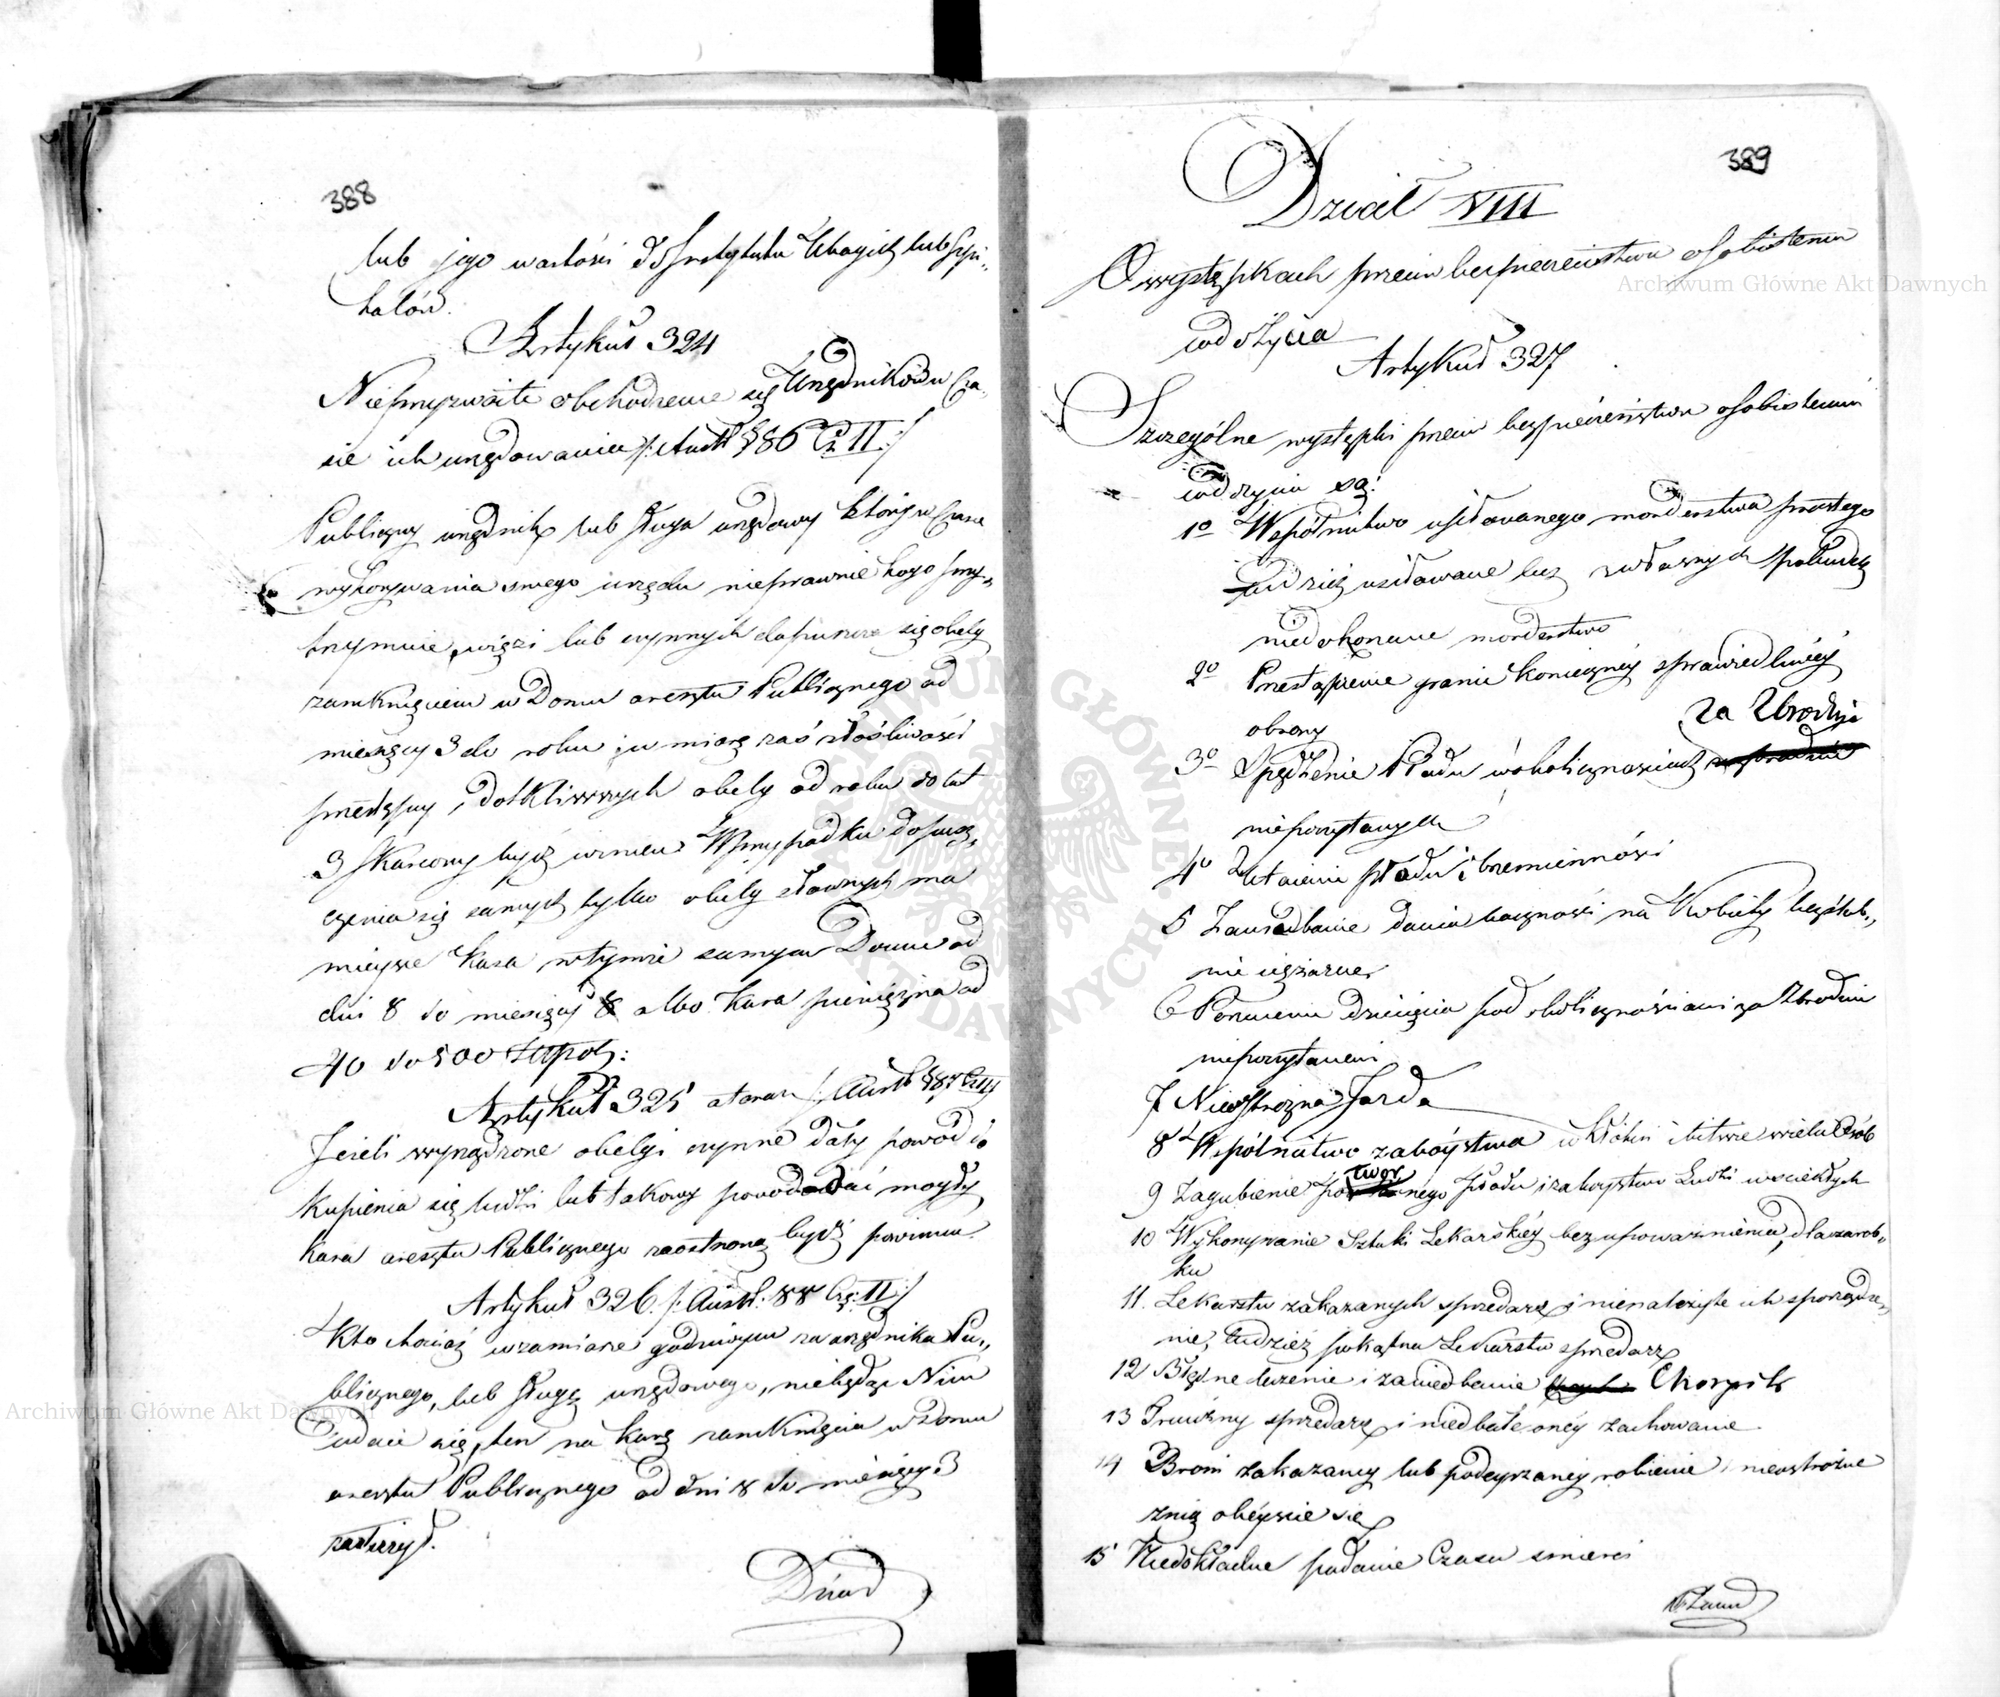 388
lub jego wartości do Instytutu Ubogich lub Szpi-
talów.
Artykuł 324
Nieprzyzwoite obchodzenie się Urzędników w Cza-
sie ich urzędowania /: Austr. § 86 Cz II :/
Publiczny urzędnik lub sługa urzędowy który w czasie
wykonywania swego urzędu nieprawnie kogo przy-
trzymuie, więzi lub czynnych dopuszcza się obelg
zamknięciem w Domu aresztu Publicznego od
miesięcy 3 do roku, w miarę zaś złośliwości
przestępcy, dotkliwszych obelg od roku do lat
3 Karcony bydź winien. W przypadku dopusz-
czenia się samych tylko obelg słownych ma
miejsce Kara w tymże samym Domu od
dni 8 do miesięcy albo Kara pieniężna od
40 do 500 Złłpol:
Artykuł 325 /: Austr § 87 Cz II
Jeżeli wyrządzone obelgi czynne dały powód do
kupienia się ludzi lub takowy powodować mogły
kara aresztu Publicznego zaostrzoną bydź powinna.
Artykuł 326. /: Austr: 88 Cz: II :/
Kto chociaż w zamiarze godziwym za urzędnika Pu-
blicznego, lub sługę urzędowego, niebędąc Nim
udaie się, ten na karę zamknięcia w Domu
aresztu Publicznego od dni 8 do miesięcy 3
zasłużył.
389
Dział VIII
O występkach przeciw bezpieczeństwu osobistemu
co do życia
Artykuł 327
Szczególne występki przeciw bezpieczeństwu osobistemu
co do życia są:
1o Wspólnictwo usiłowanego morderstwa prostego
tudzież usiłowane lecz z własnych pobudek
niedokonane morderstwo
2o Przestąpienie granic konieczney sprawiedliwéy
obrony za Zbrodnię
3o Spędzenie Płodu w okolicznościach
niepoczytanych
4o Utaienie płodu i brzemienności
5 Zaniedbanie dania baczności na Kobiety bezślub-
nie ciężarne
6 Porzucenie dziecięcia pod okolicznościami za Zbrodnię
niepoczytanemi
7 Nieostrożna Jazda
8 Wspólnictwo zabóystwa w kłótni i bitwie wielu Osób
9 Zagubienie potwornego płodu i zabóystwo Ludzi wściekłych
10 Wykonywanie Sztuki Lekarskiéy bez upoważnienia, dla zarob-
ku
11. Lekarstw zakazanych sprzedaż i nienależyte ich sporządze-
nie, tudzież pokątna Lekarstw sprzedaż
12 Błędne leczenie i zaniedbanie Chorych
13 Trucizny sprzedaż i niedbałe onéy zachowanie
14 Broni zakazaney lub podeyrzaney robienie i nieostrożne
z nią obéyście się
15 Niedokładne podanie Czasu śmierci
Archiwum Główne Akt Dawnych
Archiwum Główne Akt Dawnych
ARCHIWUM GŁÓWNE AKT DAWNYCH